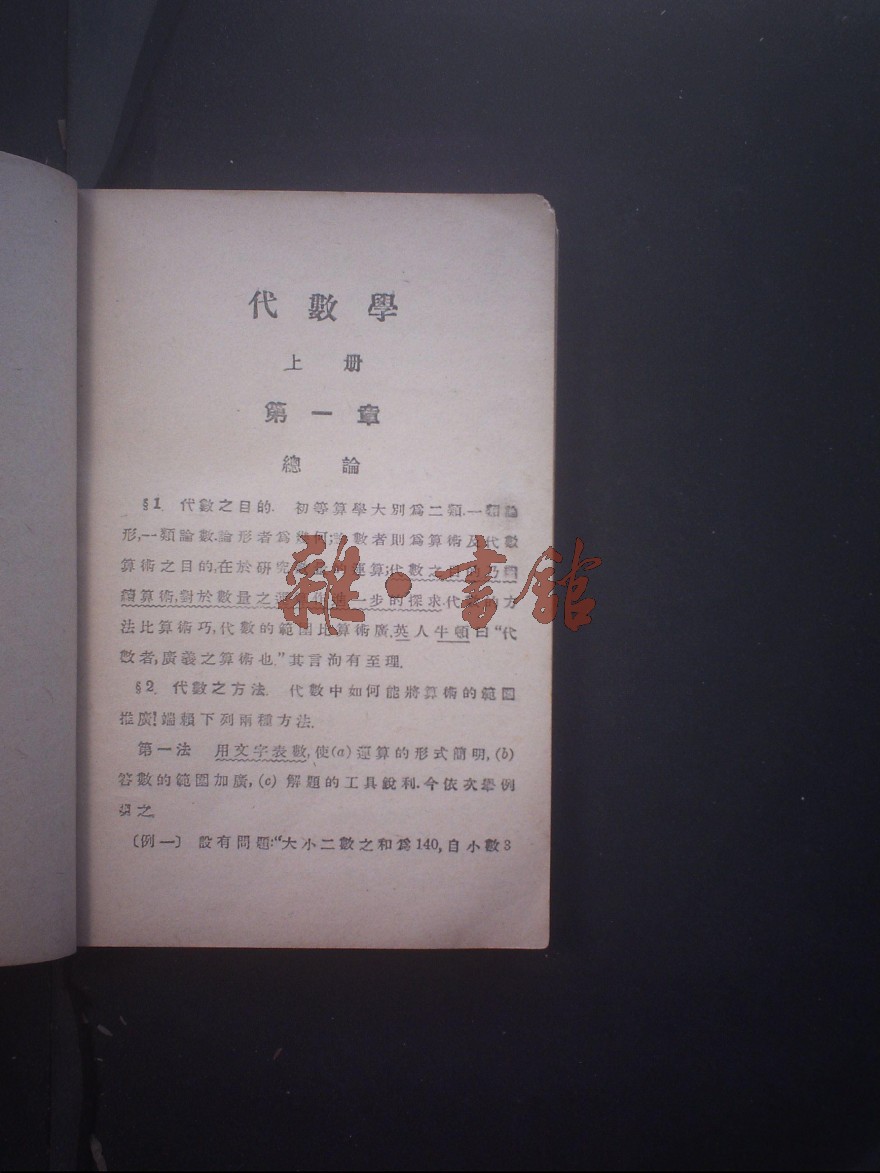 代數學
上册
第一章
總論
§1. 代數之目的. 初等算學大別爲二類.一類論
形,一類論數.論形者爲幾何;論數者則爲算術及代數
算術之目的,在於研究的運算;代數之目的乃
算術,對於數量之一步的探求.代數的方
法比算術巧,代數的範圍比算術廣.英人牛頓曰“代
數者,廣義之算術也.”其言洵有至理.
§2. 代數之方法. 代數中如何能將算術的範圍
推廣!端賴下列兩種方法.
第一法 用文字表數,使(a)運算的形式簡明,(b)
答數的範圍加廣,(c)解題的工具銳利.今依次舉例
之.
〔例一〕 設有問題:“大小二數之和爲140,自小數3
雜·書館